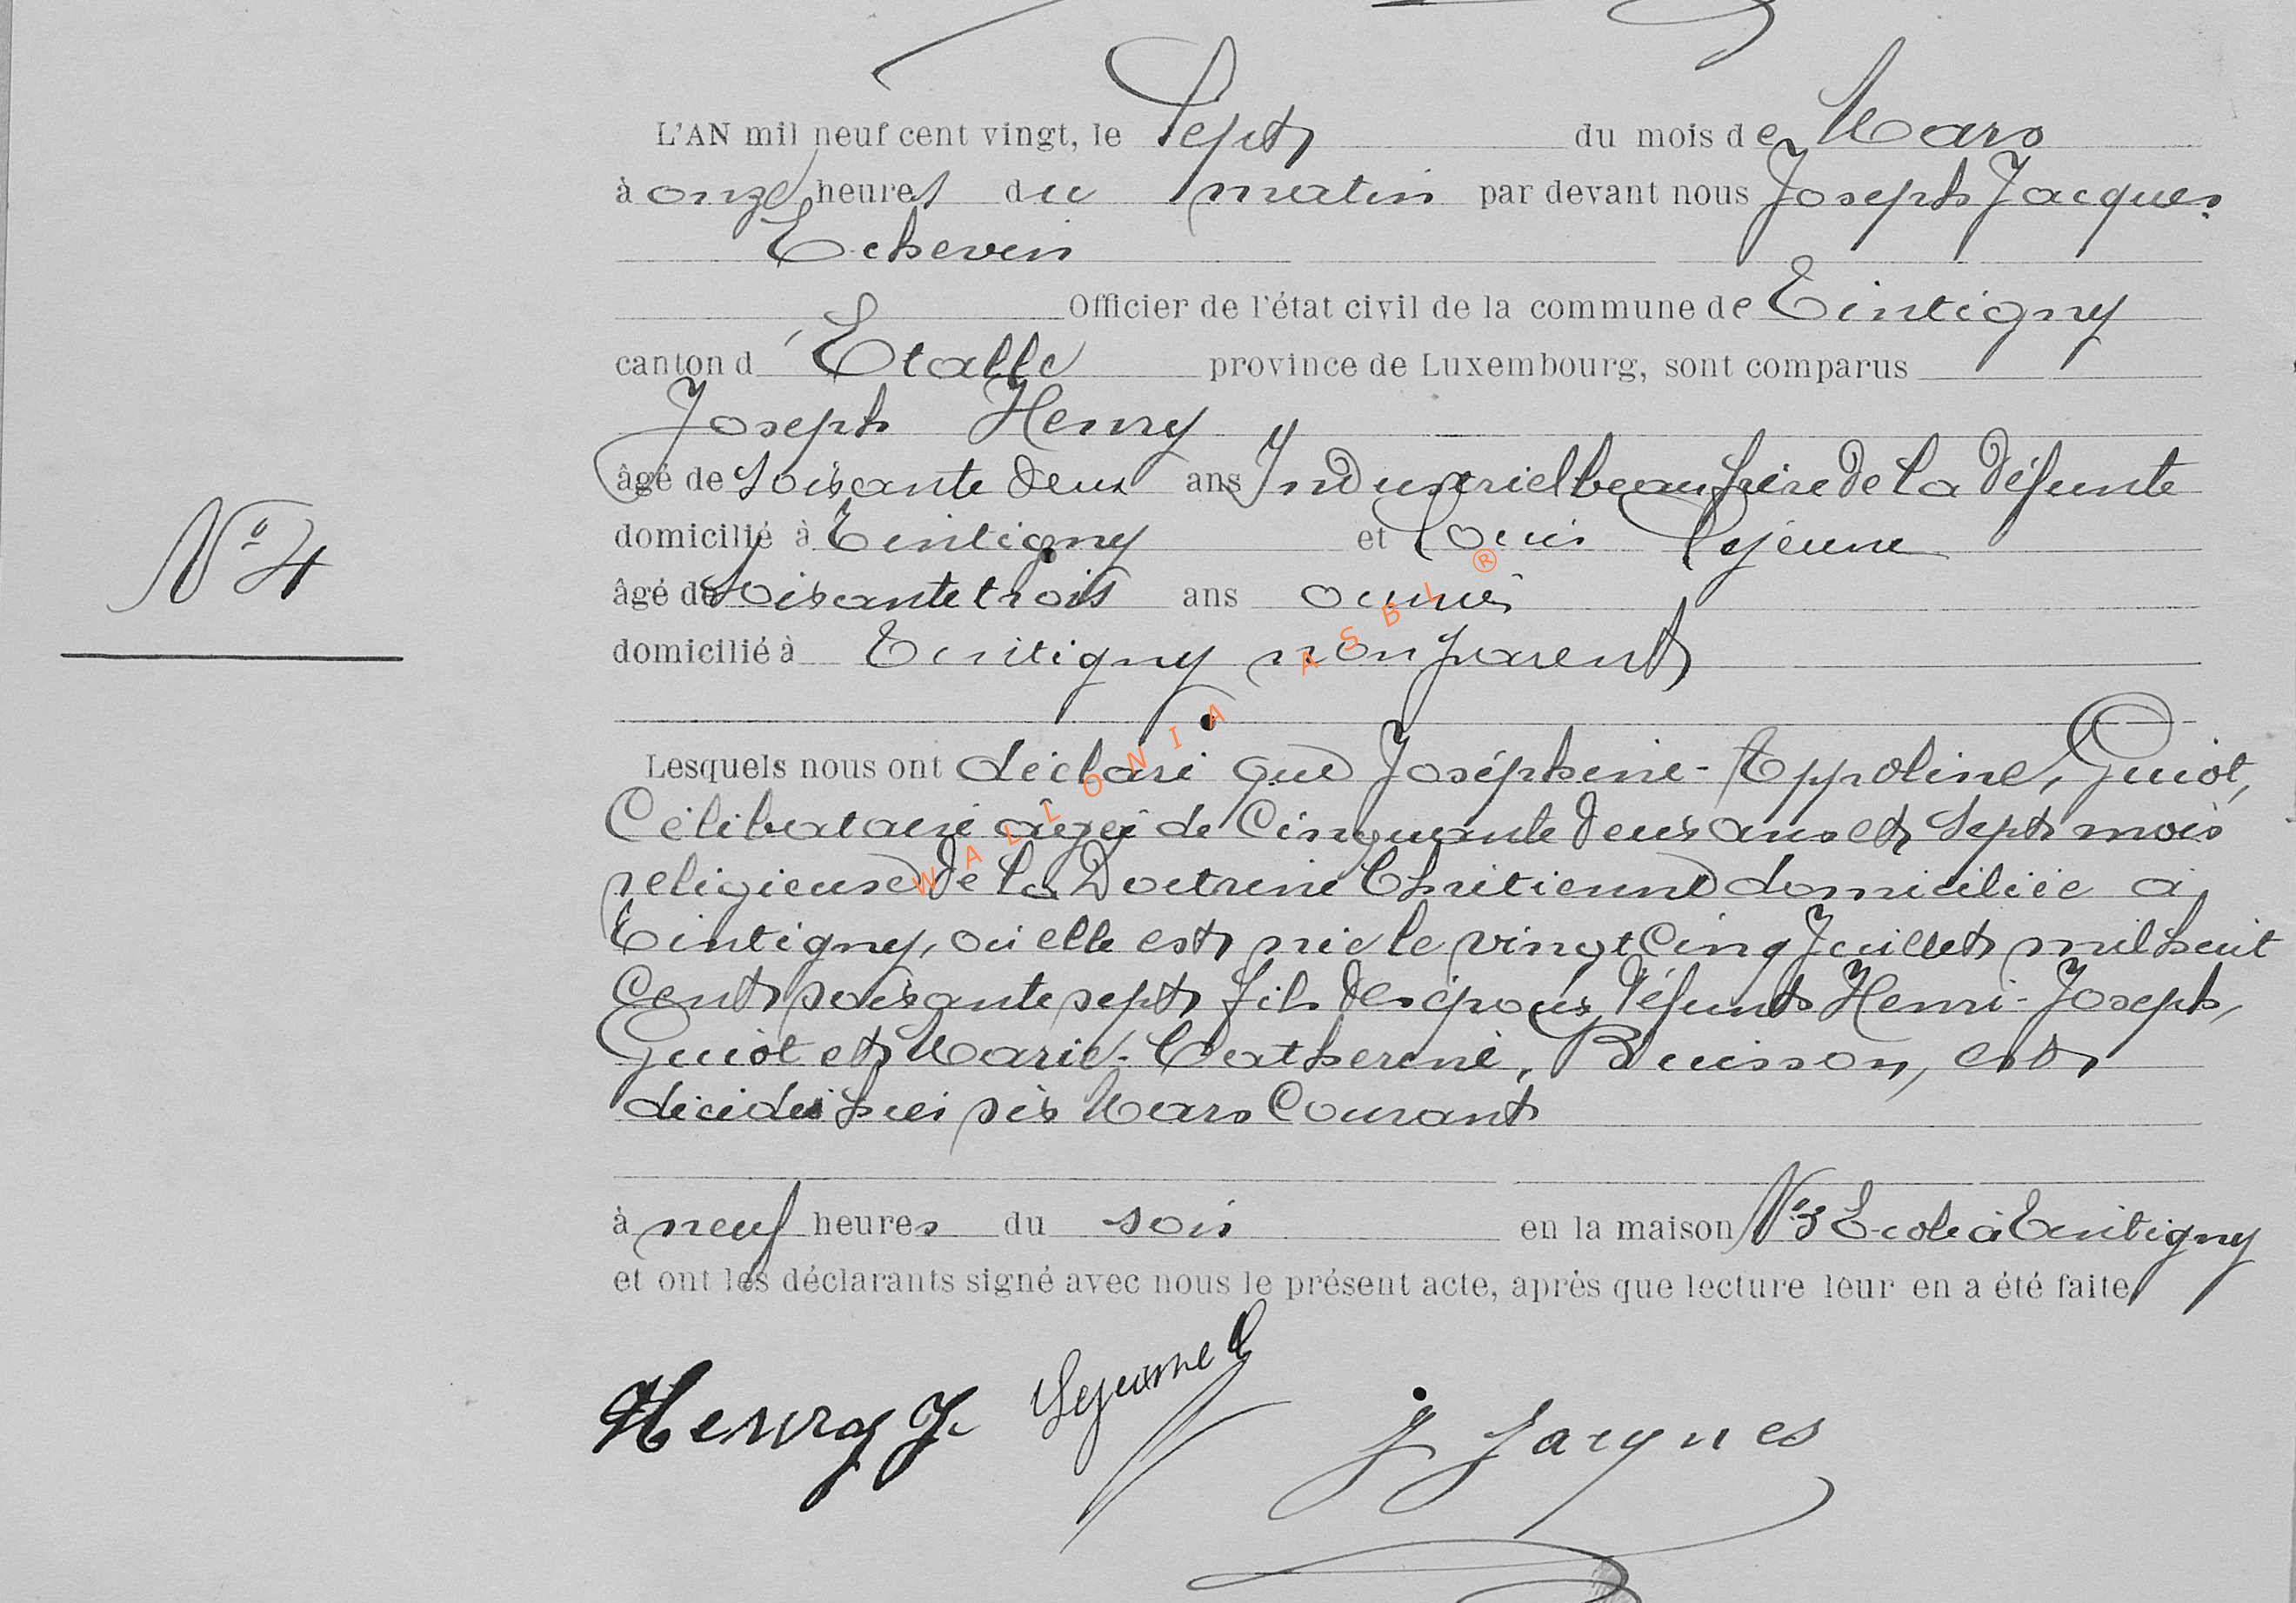 L'AN mil neuf cent vingt, le Sept du mois de Mars
à onze heures du matin par devant nous Joseph Jacques
Echevin
Officier de l'état civil de la commune de Tintigny
canton d'Etalle province de Luxembourg, sont comparus
Joseph Henry
âgé de Soixante deux ans Industriel beau frère de la défunte
N° 4
domicilié à Tintigny et Louis Lejeune
âgé de Soixante trois ans
domicilié à Tintigny non parent
Lesquels nous ont déclaré que Joséphine-Appoline, Guiot,
Célibataire agée de Cinquante deux ans et Sept mois
religieuse de la Doctrine Chrétienne domiciliée à
Tintigny, où elle est née le vingt Cinq Juillet mil huit
Cent soixante sept fils des époux défunts Henri-Joseph,
Guiot et Marie-Catherine, Buisson, est
décédée hier six Mars Courant
à neuf heures du soir en la maison N°3 Ecole à Tintigny
et ont les déclarants signé avec nous le présent acte, après que lecture leur en a été faite
Henry J. Lejeune L J Jacques
WALLONIA ASBL ®